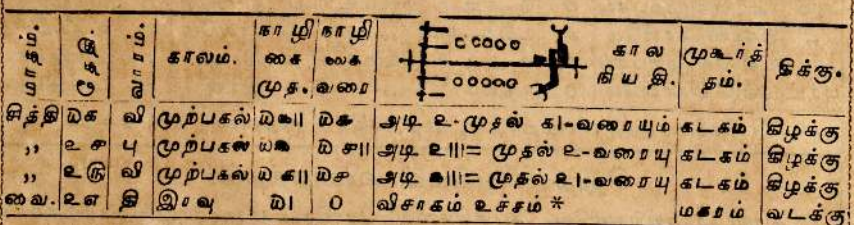 மாதம். தேதி. வாரம். காலம். நாழிகை முத. நாழிகை வரை கால நியதி. முகூர்த்தம். திக்கு.
சித்தி ௰௧ வி முற்பகல் அடி ௨-முதல் ௧|-வரையும் கடகம் கிழக்கு
,, ௨௪ பு முற்பகல் அடி ௨|||= முதல் ௨-வரையு கடகம் கிழக்கு
,, ௨௫ வி முற்பகல் முதல் ௨|-வரையு கடகம் கிழக்கு
வை. ௨௭ தி இரவு ௰| 0 விசாகம் உச்சம் * மகரம் வடக்கு